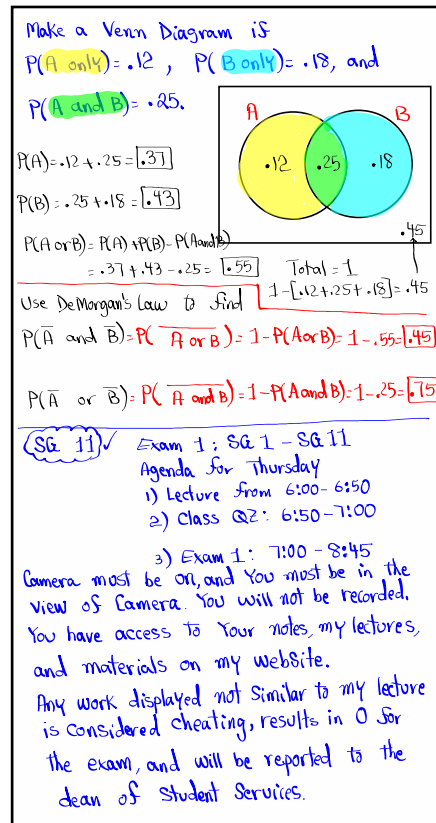 Make a Venn Diagram if
P(A only)= .12 , P(B only)= .18, and
P(A and B) = .25.
A B
.12 .25 .18
.45
P(A)= .12 + .25 = .37
P(B) = .25 + .18 = .43
P(A or B)= P(A) + P(B) - P(A and B)
= .37 + .43 - .25 = .55
Total = 1
1 - [.12 + .25 + .18] = .45
Use DeMorgan's Law to find
P(A̅ and B̅)= P( \overline{A or B} )= 1 - P(A or B)= 1 - .55 = .45
P(A̅ or B̅)= P( \overline{A and B} )= 1 - P(A and B)= 1 - .25 = .75
SG 11 ✓ Exam 1 : SG 1 - SG 11
Agenda for Thursday
1) Lecture from 6:00 - 6:50
2) Class QZ : 6:50 - 7:00
3) Exam 1 : 7:00 - 8:45
Camera must be on, and You must be in the
view of Camera. You will not be recorded.
You have access to Your notes, my lectures,
and materials on my website.
Any work displayed not similar to my lecture
is considered cheating, results in 0 for
the exam, and will be reported to the
dean of Student Services.